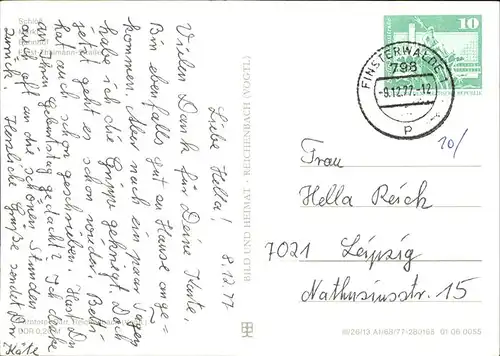 8.12.77
Liebe Hella!
Vielen Dank für Deine Karte.
Bin ebenfalls gut zu Hause ange-
kommen. Aber nach ein paar Tagen
habe ich die Grippe gekriegt. Doch
jetzt geht es schon wieder. Betti
hat auch schon geschrieben. Hast Du
an Ihren Geburtstag gedacht? Ich denke
auch oft an die schönen Stunden
zurück. Herzliche Grüße sendet Dir
Käte
Schloß
BILD UND HEIMAT · REICHENBACH (VOGTL)
DDR 0,20 M
FINSTERWALDE
798
-9.12.77.-12
p
10
10/
Frau
Hella Reich
7021 Leipzig
Nathusiusstr. 15
IV/26/13 A1/68/77-280168 01 06 0055